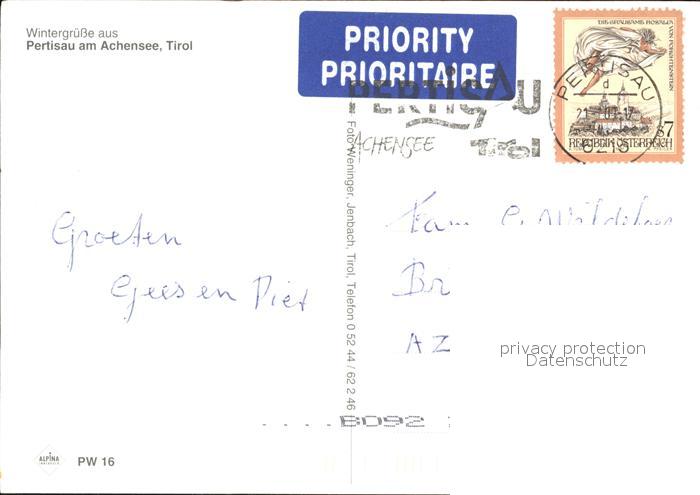 Wintergrüße aus
Pertisau am Achensee, Tirol
PRIORITY
PRIORITAIRE
DIE GRAUSAME ROSALIA VON FORCHTENSTEIN
S7
REPUBLIK ÖSTERREICH
PERTISAU
6213
PERTISAU
ACHENSEE Tirol
Foto Weninger, Jenbach, Tirol, Telefon 0 52 44 / 62 2 46
Groeten
Gees en Piet
Fam
Br
AZ
privacy protection
Datenschutz
BD92
ALPINA
PW 16